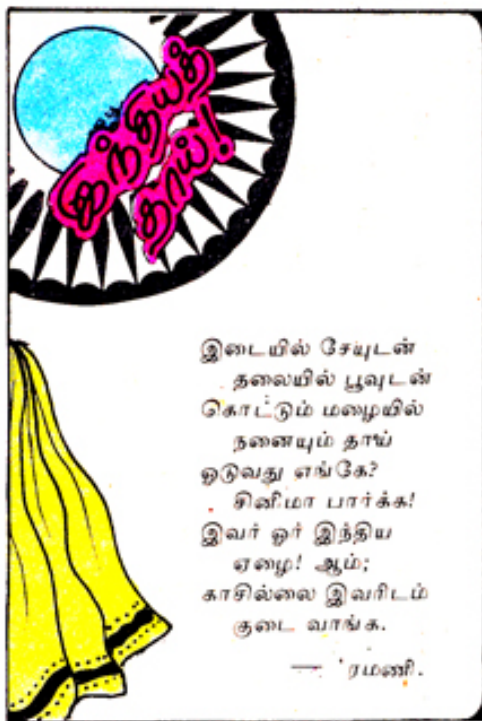 இந்தியத்
தாய்!
இடையில் சேயுடன்
தலையில் பூவுடன்
கொட்டும் மழையில்
நனையும் தாய்
ஓடுவது எங்கே?
சினிமா பார்க்க!
இவர் ஓர் இந்திய
ஏழை! ஆம்;
காசில்லை இவரிடம்
குடை வாங்க.
— 'ரமணி.